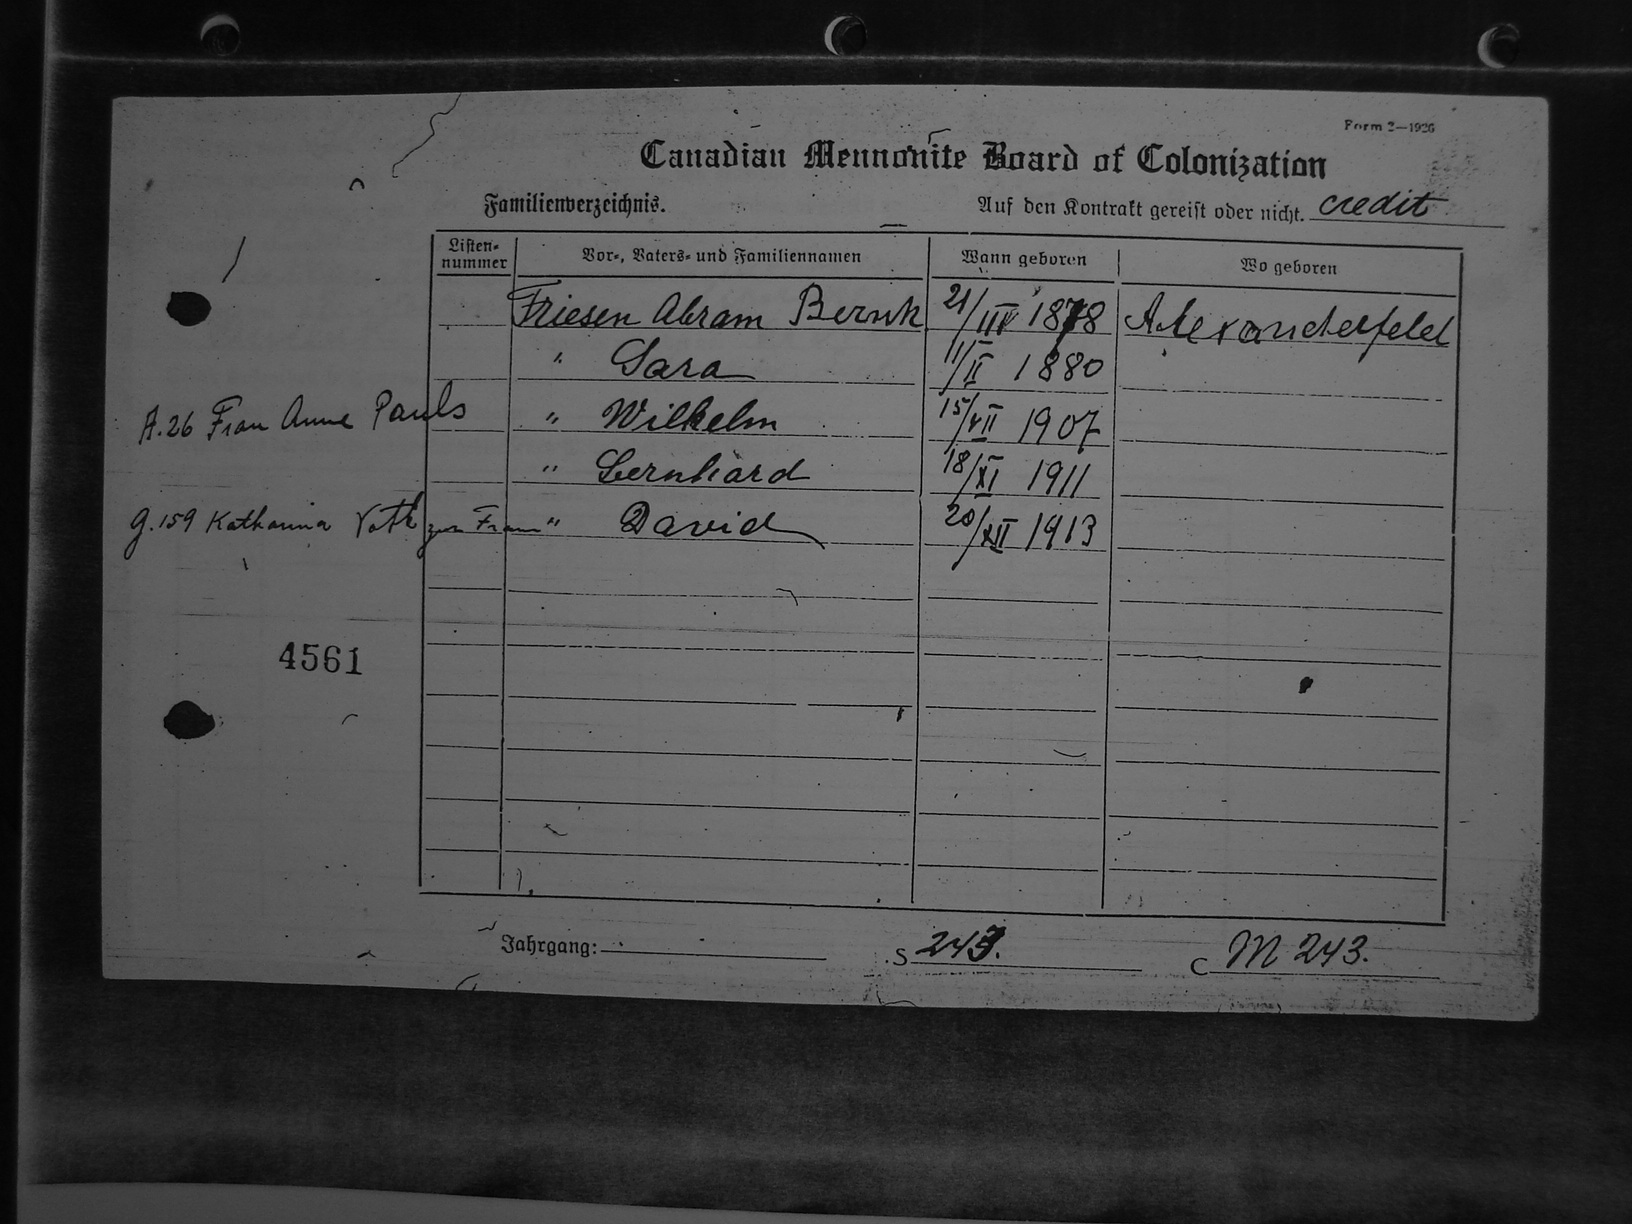 Form 2—1926
Canadian Mennonite Board of Colonization
Familienverzeichnis. Auf den Kontrakt gereist oder nicht. credit
Listen-nummer Vor-, Vaters- und Familiennamen Wann geboren Wo geboren
Friesen Abram Bernh 21/III 1878 Alexanderfeld
" Sara 11/II 1880
A.26 Frau Anna Pauls " Wilhelm 15/VII 1907
" Bernhard 18/XI 1911
g.159 Katharina Voth zur Frau " David 20/XII 1913
4561
Jahrgang: S 243. C M 243.